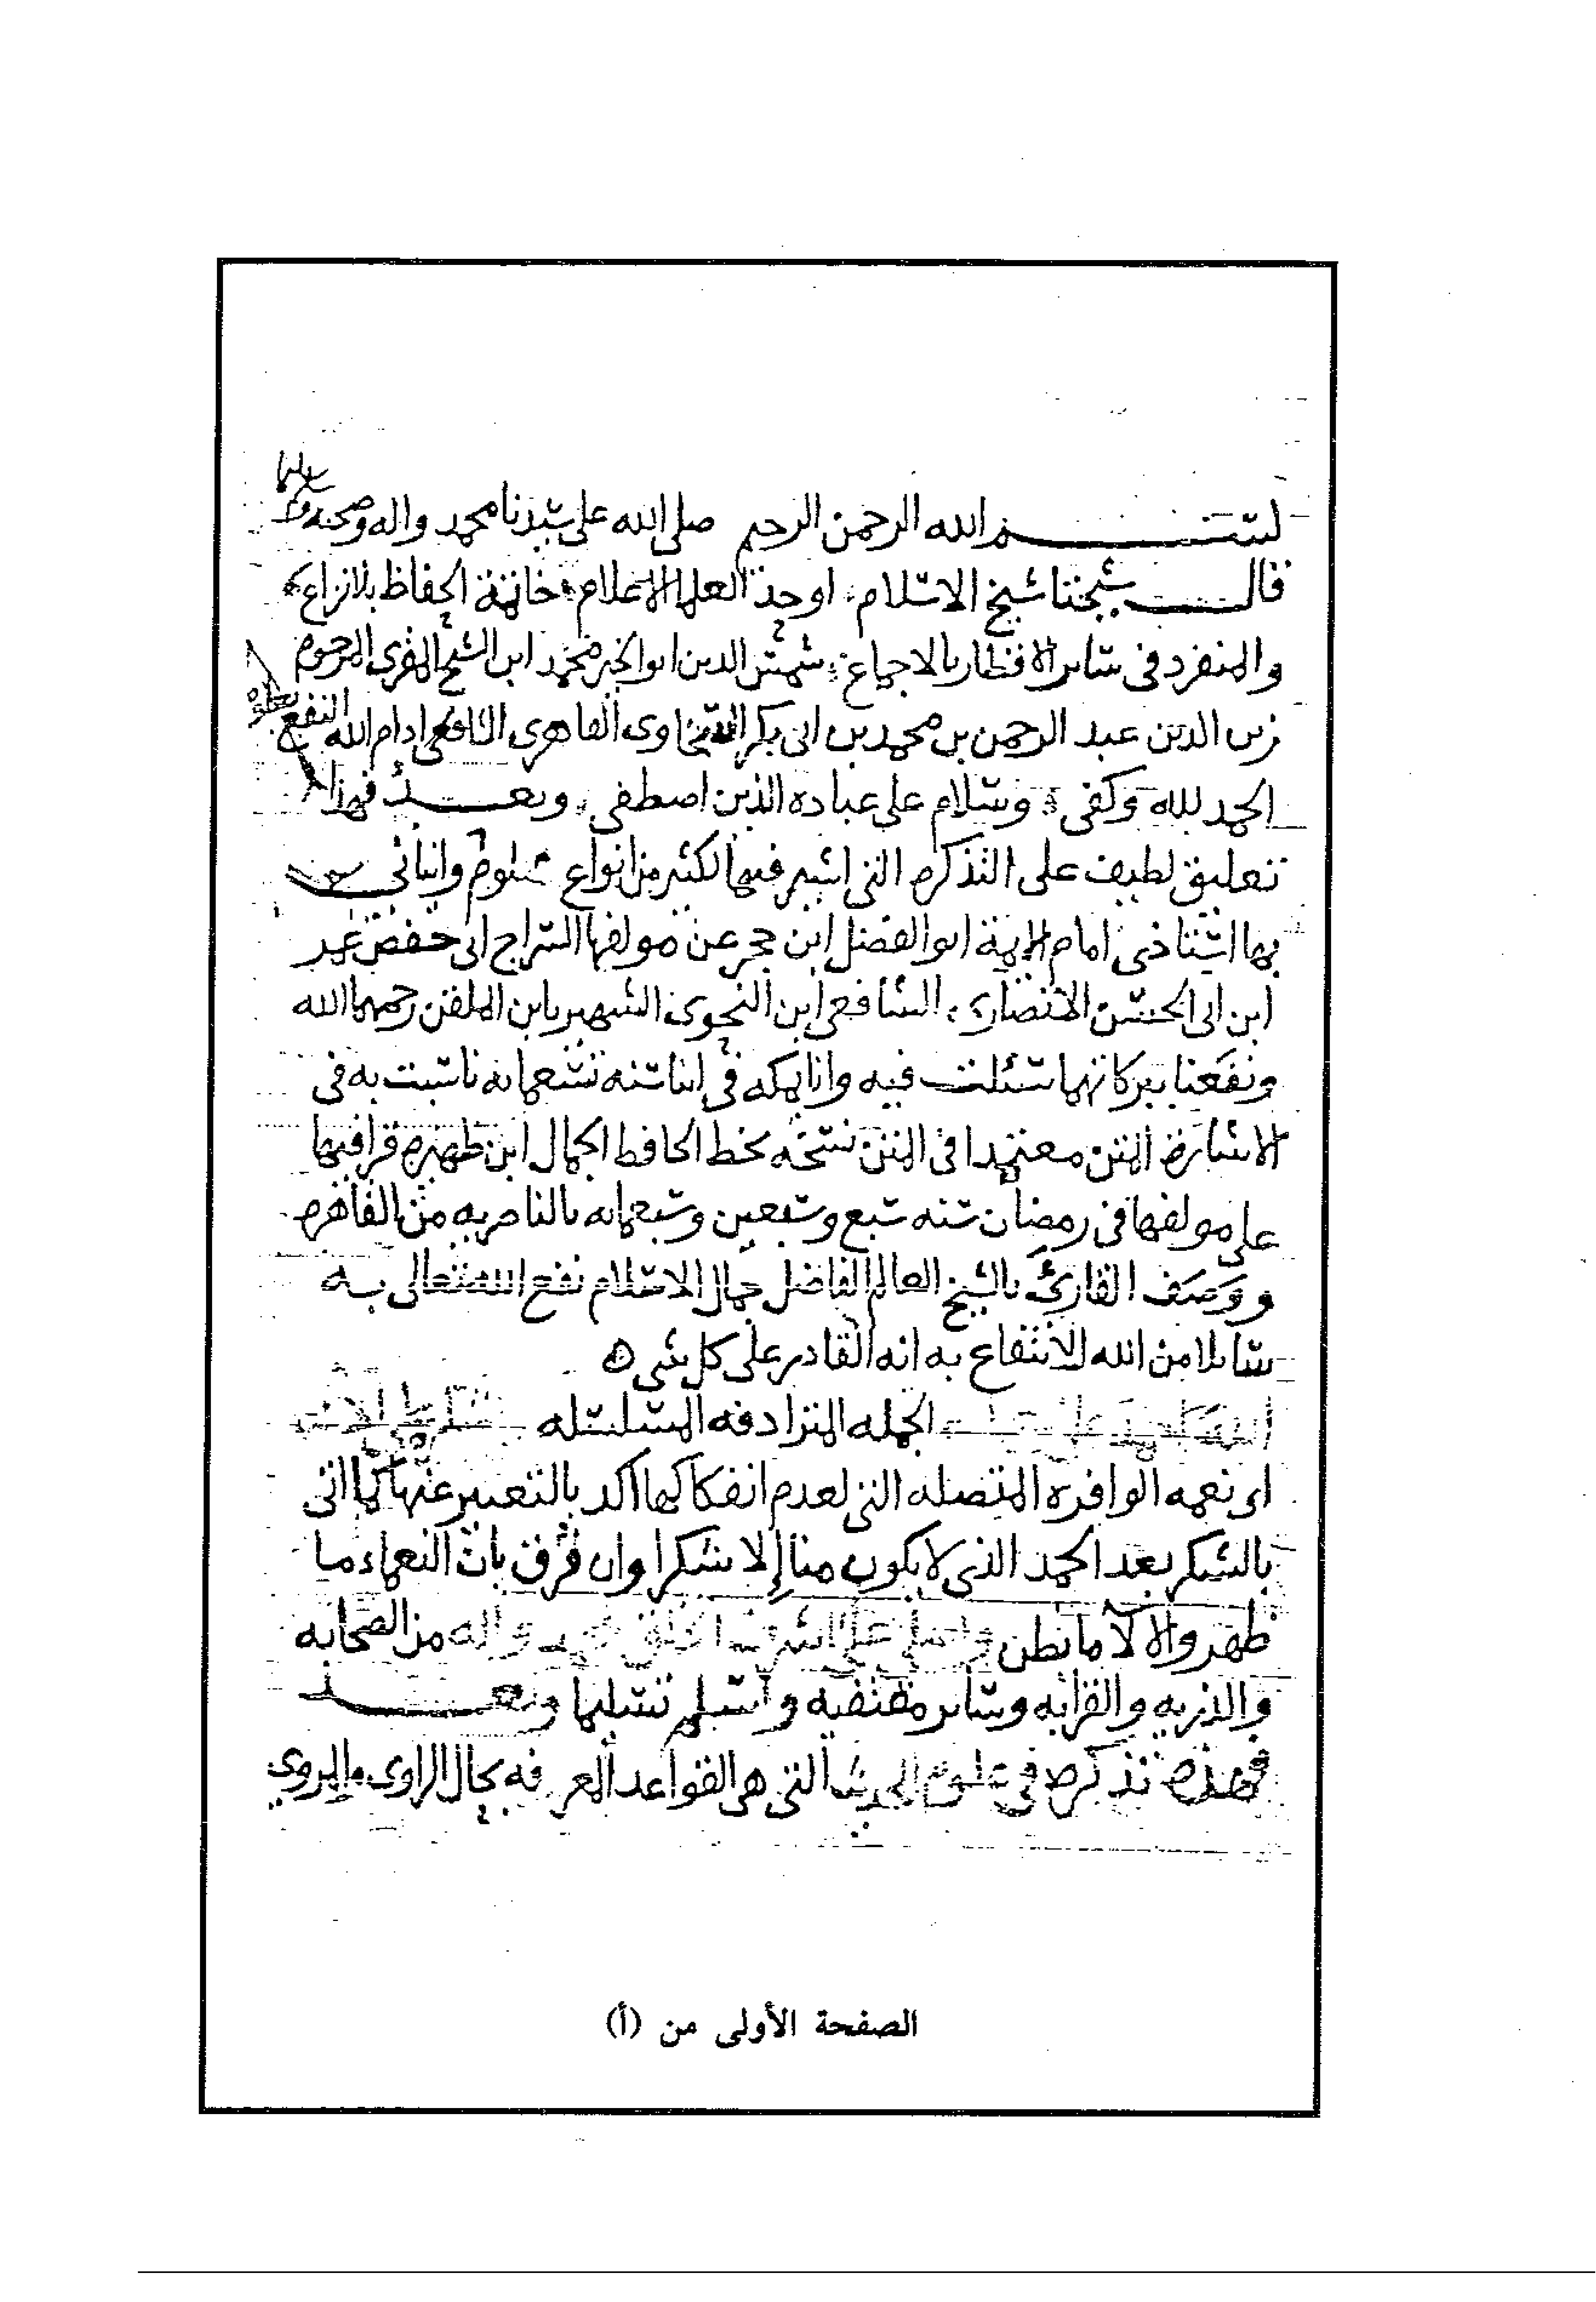 بســـــم الله الرحمن الرحيم صلى الله على سيدنا محمد واله وصحبه وسلم
قال شيخنا شيخ الاسلام، اوحد العلما الاعلام، خاتمة الحفاظ بلا نزاع
والمنفرد فى ساير الاقطار بالاجماع، شمس الدين ابو الخير محمد ابن الشيخ المقرى المرحوم
زين الدين عبد الرحمن بن محمد بن ابى بكر السخاوى القاهرى الشافعى ادام الله النفع بعلومه
الحمد لله وكفى وسلام على عباده الذين اصطفى، وبعـــد فهذا
تعليق لطيف على التذكره التى اشير فيها لكثير من انواع علومه وانبانى
بها استاذى امام الايمة ابو الفضل ابن حجر عن مولفها السراج ابى حفص عمر
ابن ابى الحسن الانصارى، الشافعى ابن النحوى الشهير بابن الملقن رحمهما الله
ونفعنا ببركاتهما سئلت فيه وانا بمكه فى اثنا سنه تسعمايه ناسبت به فى
الاشارة المتن معتمدا فى المتن نسخه بخط الحافظ الجمال ابن ظهيره قرا فيها
على مولفها فى رمضان سنه سبع وسبعين وسبعمايه بالناصريه من القاهره
ووصف القارئ بالشيخ العالم الفاضل جمال الاسلام نفع الله تعالى به
سايلا من الله الانتفاع به انه القادر على كل شى
الله احمد على الجمله المترادفه المتسلسله
اى نعمه الوافره المتصله التى لعدم انفكاكها اكد بالتعبير عنها كما اتى
بالشكر بعد الحمد الذى لا يكون منا إلا شكرا وان فرق بان النعماء ما
ظهر والالا ما بطن واصلى على اشرف الخلق محمد واله من الصحابه
والذريه والقرابه وساير مقتفيه واسلم تسليما وبعـــد
فهذه تذكره فى علوم الحديث التى هى القواعد المعرفه بحال الراوى والمروى
الصفحة الأولى من (أ)